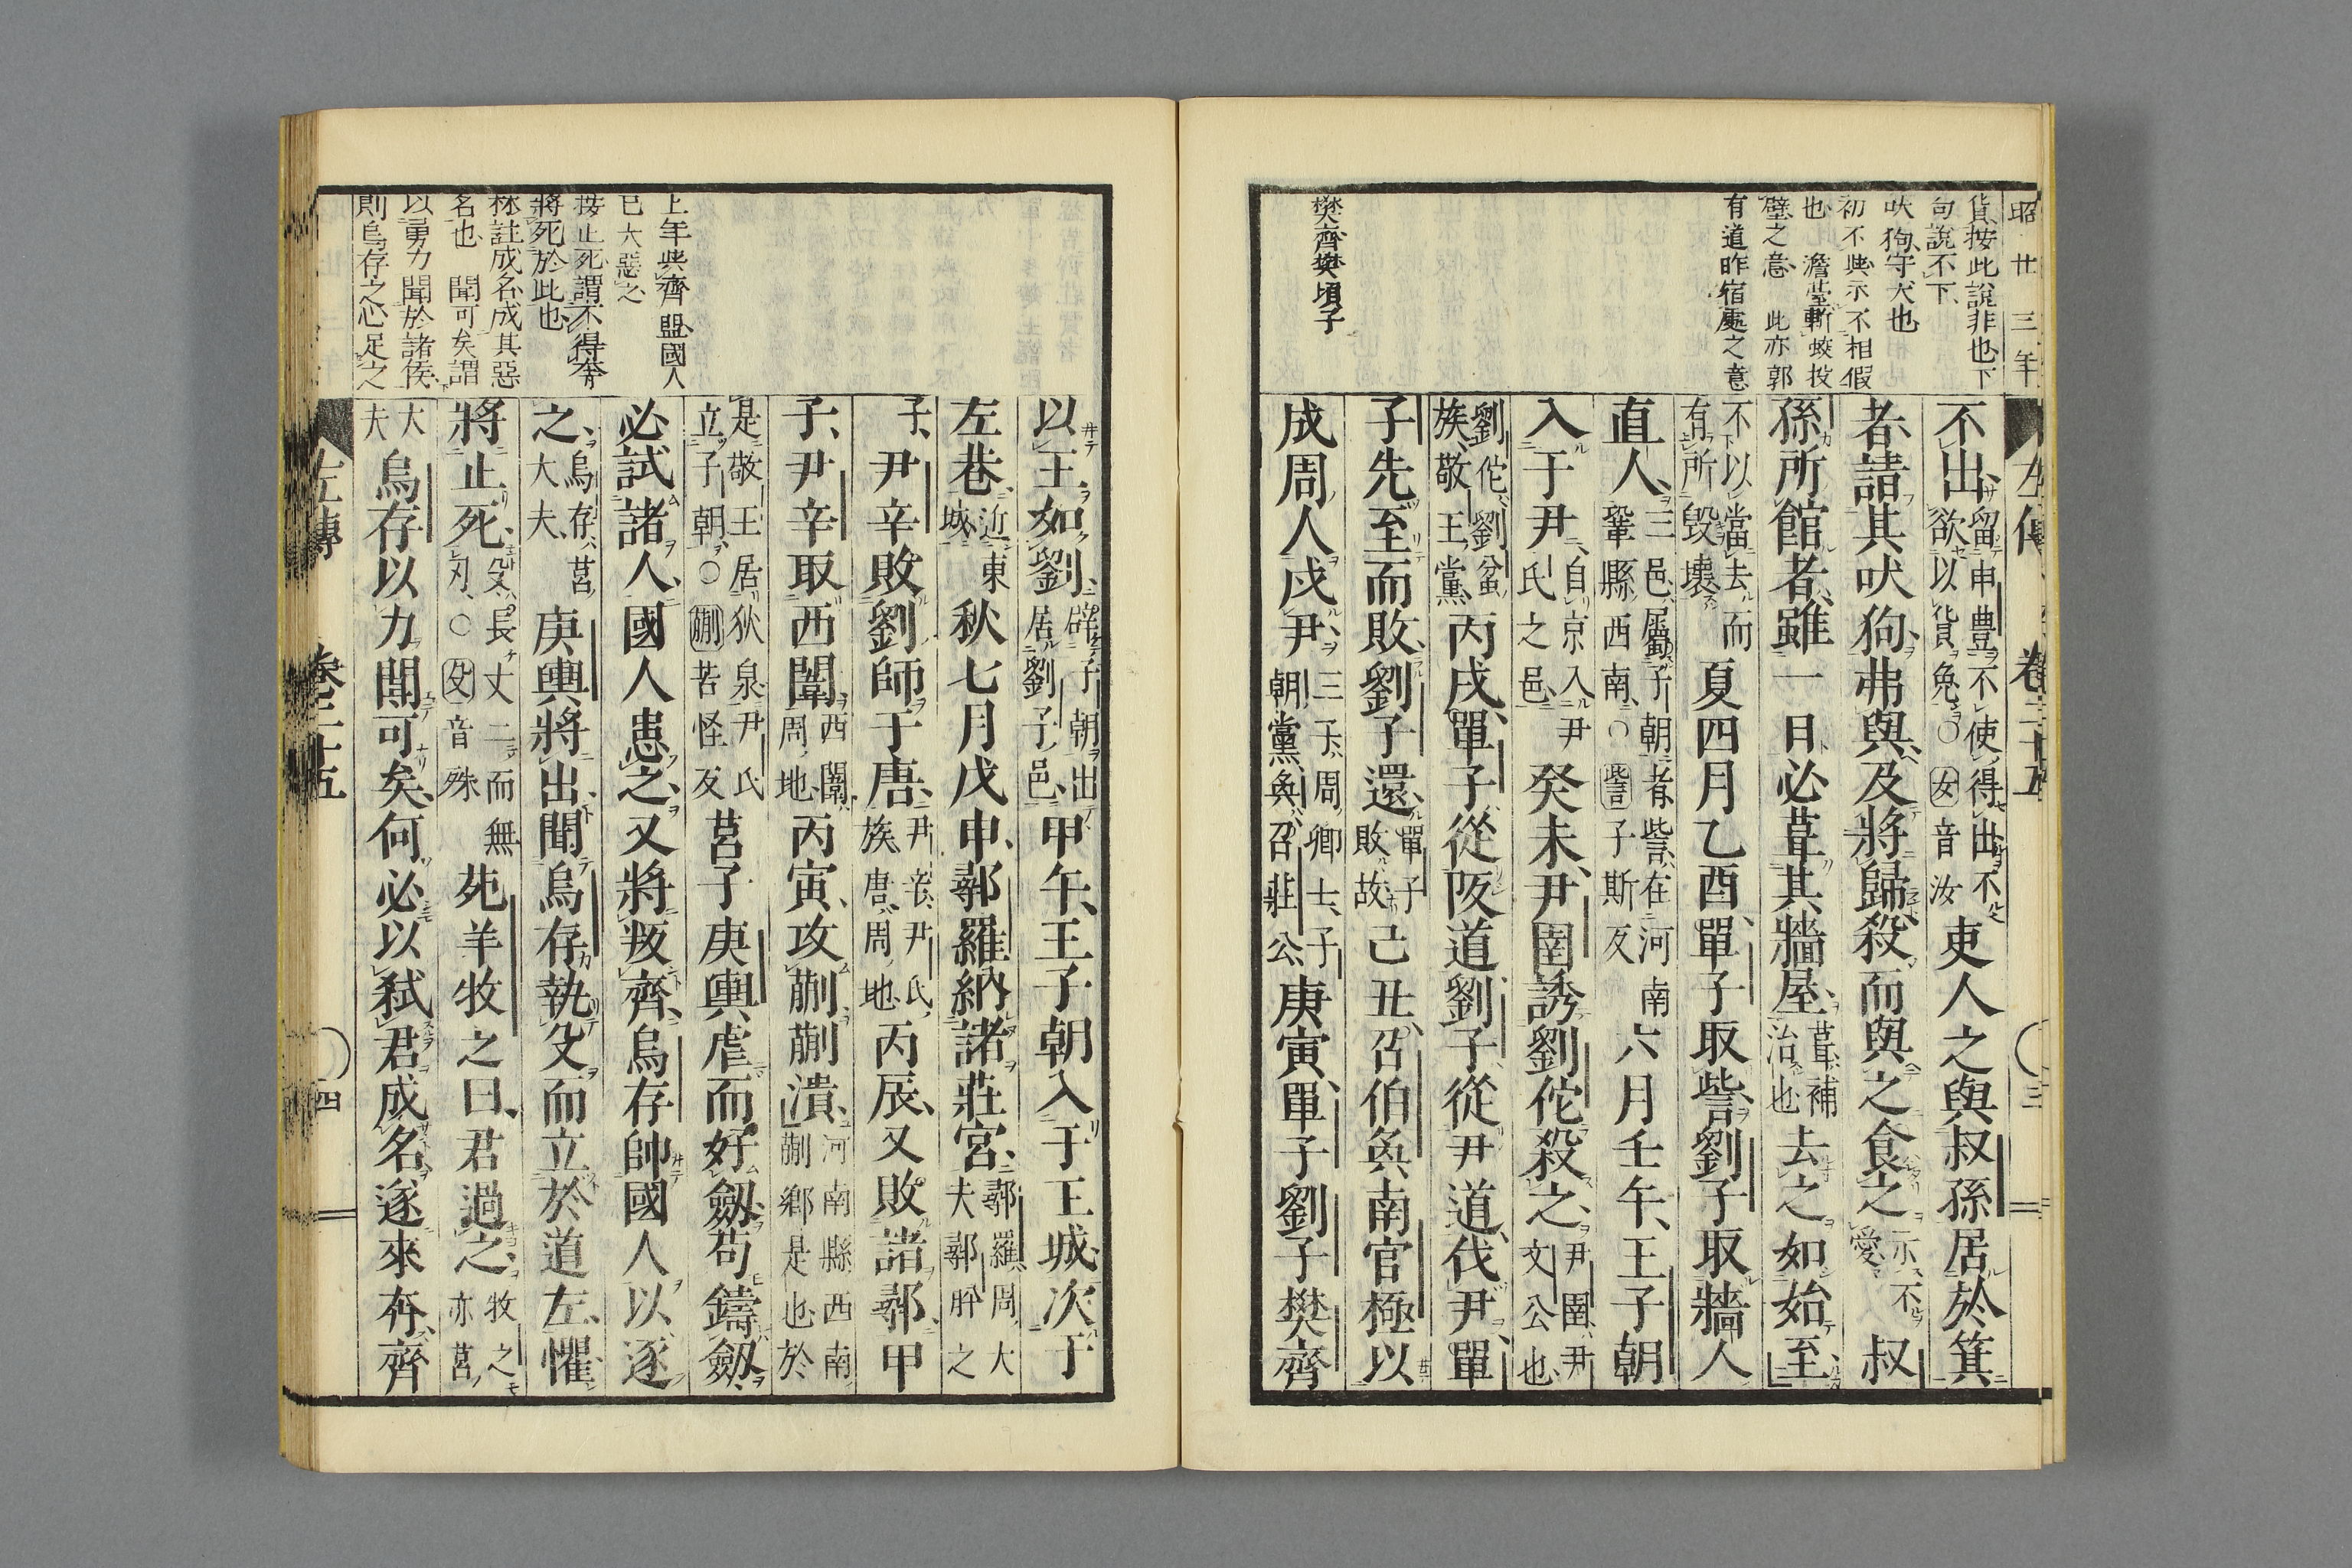 昭廿三年
貨按此說非也下
句說不下
吠狗守犬也
初不與示不相假
也 澹臺斬蛟投
璧之意 此亦郭
有道昨宿處之意
樊齊樊頃子
左傳 卷二十五 三
不出留申豊不使得出不欲以貨免○女音汝吏人之與叔孫居於箕
者請其吠狗弗與及將歸殺而與之食之示不愛叔
孫所館者雖一日必葺其牆屋葺補治也去之如始至
不以當去而有所毀壞夏四月乙酉單子取訾劉子取牆人
直人三邑屬子朝者訾在河南鞏縣西南○訾子斯反六月壬午王子朝
入于尹自京入尹氏之邑癸未尹圉誘劉佗殺之尹圉尹文公也
劉佗劉蚠族敬王黨丙戌單子從阪道劉子從尹道伐尹單
子先至而敗劉子還單子敗故己丑召伯奐南宮極以
成周人戍尹三子周卿士子朝黨奐召莊公庚寅單子劉子樊齊
以王如劉辟子朝出居劉子邑甲午王子朝入于王城次于
左巷近東城秋七月戊申鄩羅納諸莊宮鄩羅周大夫鄩肸之
子尹辛敗劉師于唐尹辛尹氏族唐周地丙辰又敗諸鄩甲
子尹辛取西闈西闈周地丙寅攻蒯蒯潰河南縣西南蒯鄉是也於
是敬王居狄泉尹氏立子朝○蒯苦怪反莒子庚輿虐而好劒苟鑄劒
必試諸人國人患之又將叛齊烏存帥國人以逐
之烏存莒大夫庚輿將出聞烏存執殳而立於道左懼
將止死殳長丈二而無刃○殳音殊苑羊牧之曰君過之牧之亦莒
大夫烏存以力聞可矣何必以弑君成名遂來奔齊
上年與齊盟國人
已大惡之
按止死謂不得奔
將死於此也
林註成名成其惡
名也 聞可矣謂
以勇力聞於諸侯
則烏存之心足之
左傳 卷二十五 四